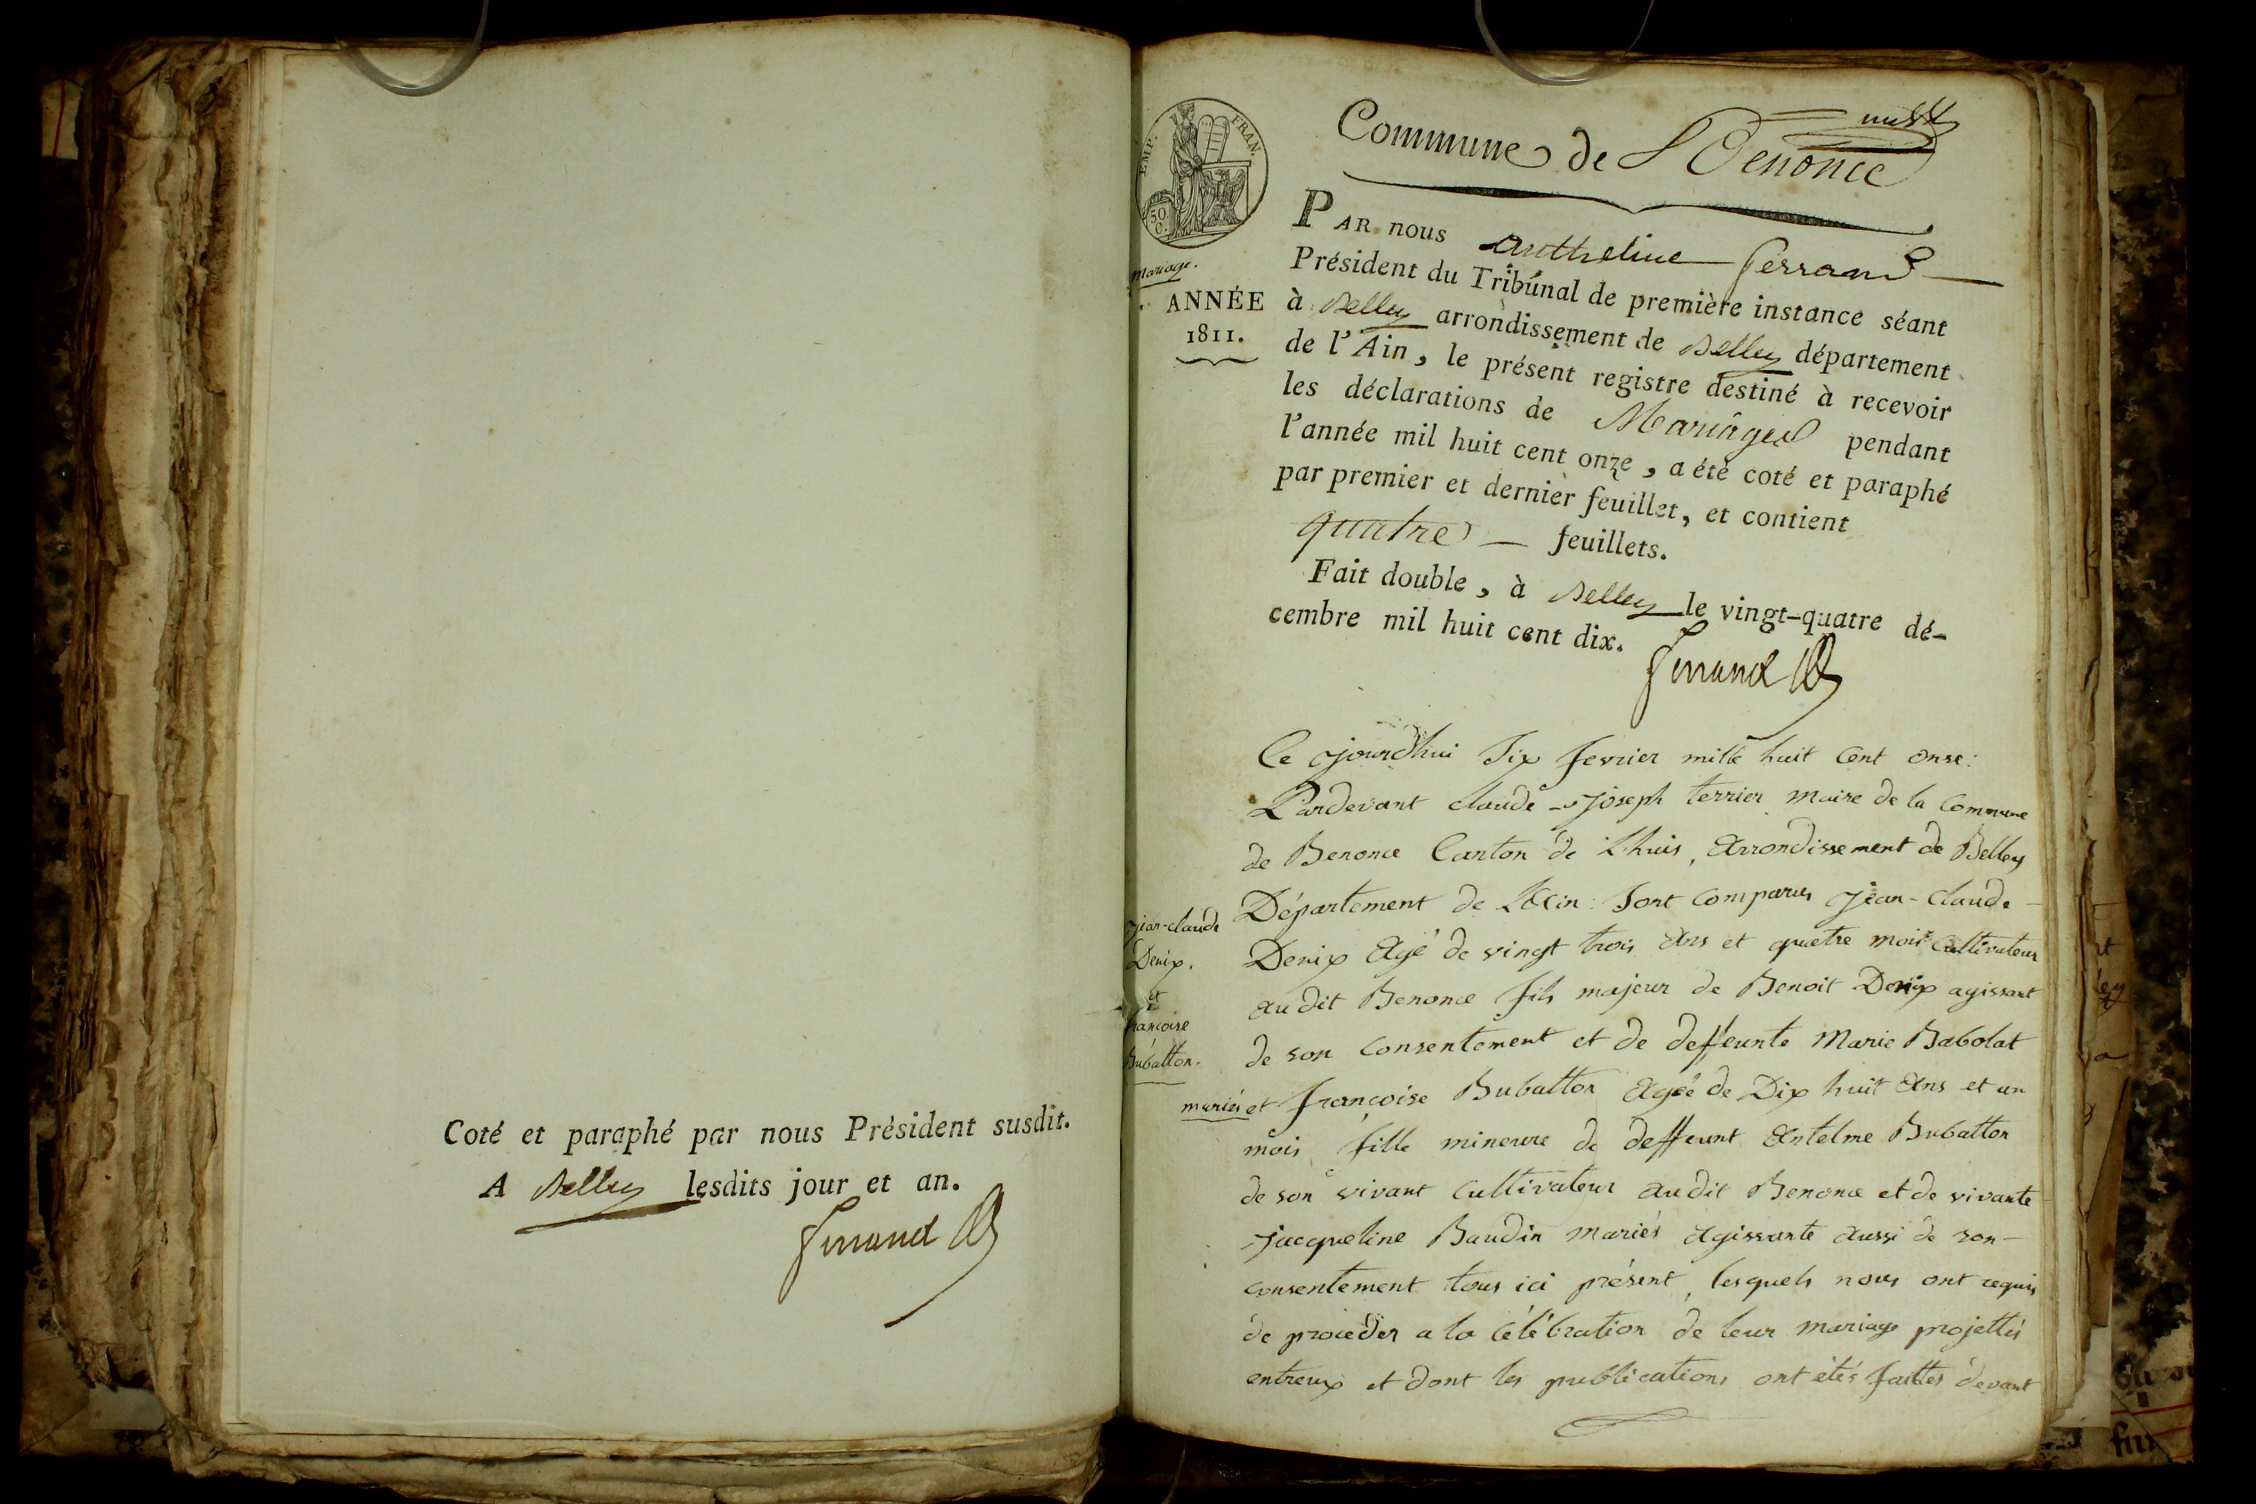 Coté et paraphé par nous Président susdit.
A Belley lesdits jour et an.
Ferrand
EMP. FRAN.
50
C.
Commune de Benonce
mariage.
ANNÉE
1811.
PAR nous Antheline Ferrand
Président du Tribunal de première instance séant
à Belley arrondissement de Belley département
de l'Ain, le présent registre destiné à recevoir
les déclarations de Mariages pendant
l'année mil huit cent onze, a été coté et paraphé
par premier et dernier feuillet, et contient
quatre feuillets.
Fait double, à Belley le vingt-quatre dé-
cembre mil huit cent dix.
Ferrand
Ce jourdhui Six fevrier mille huit Cent onse:
Pardevant claude-joseph terrier maire de la Commune
de Benonce Canton de Lhuis, Arrondissement de Belley
Département de LAin: Sont Comparus jean-Claude
Denix Agé de vingt trois Ans et quatre mois Cultivateur
au dit Benonce fils majeur de Benoit Denix agissant
de son Consentement et de deffeunte Marie Babolat
et françoise Bubatton Agée de Dix huit Ans et un
mois fille mineure de deffeunt Antelme Bubatton
de son vivant Cultivateur au dit Benonce et de vivante
jacqueline Baudin mariés Agissante aussi de son
consentement tous ici présent, lesquels nous ont requis
de proceder a la Célébration de leur mariage projettés
entreux et dont les publications ont étés faittes devant
jean-claude
Denix.
et
françoise
Bubatton.
mariés